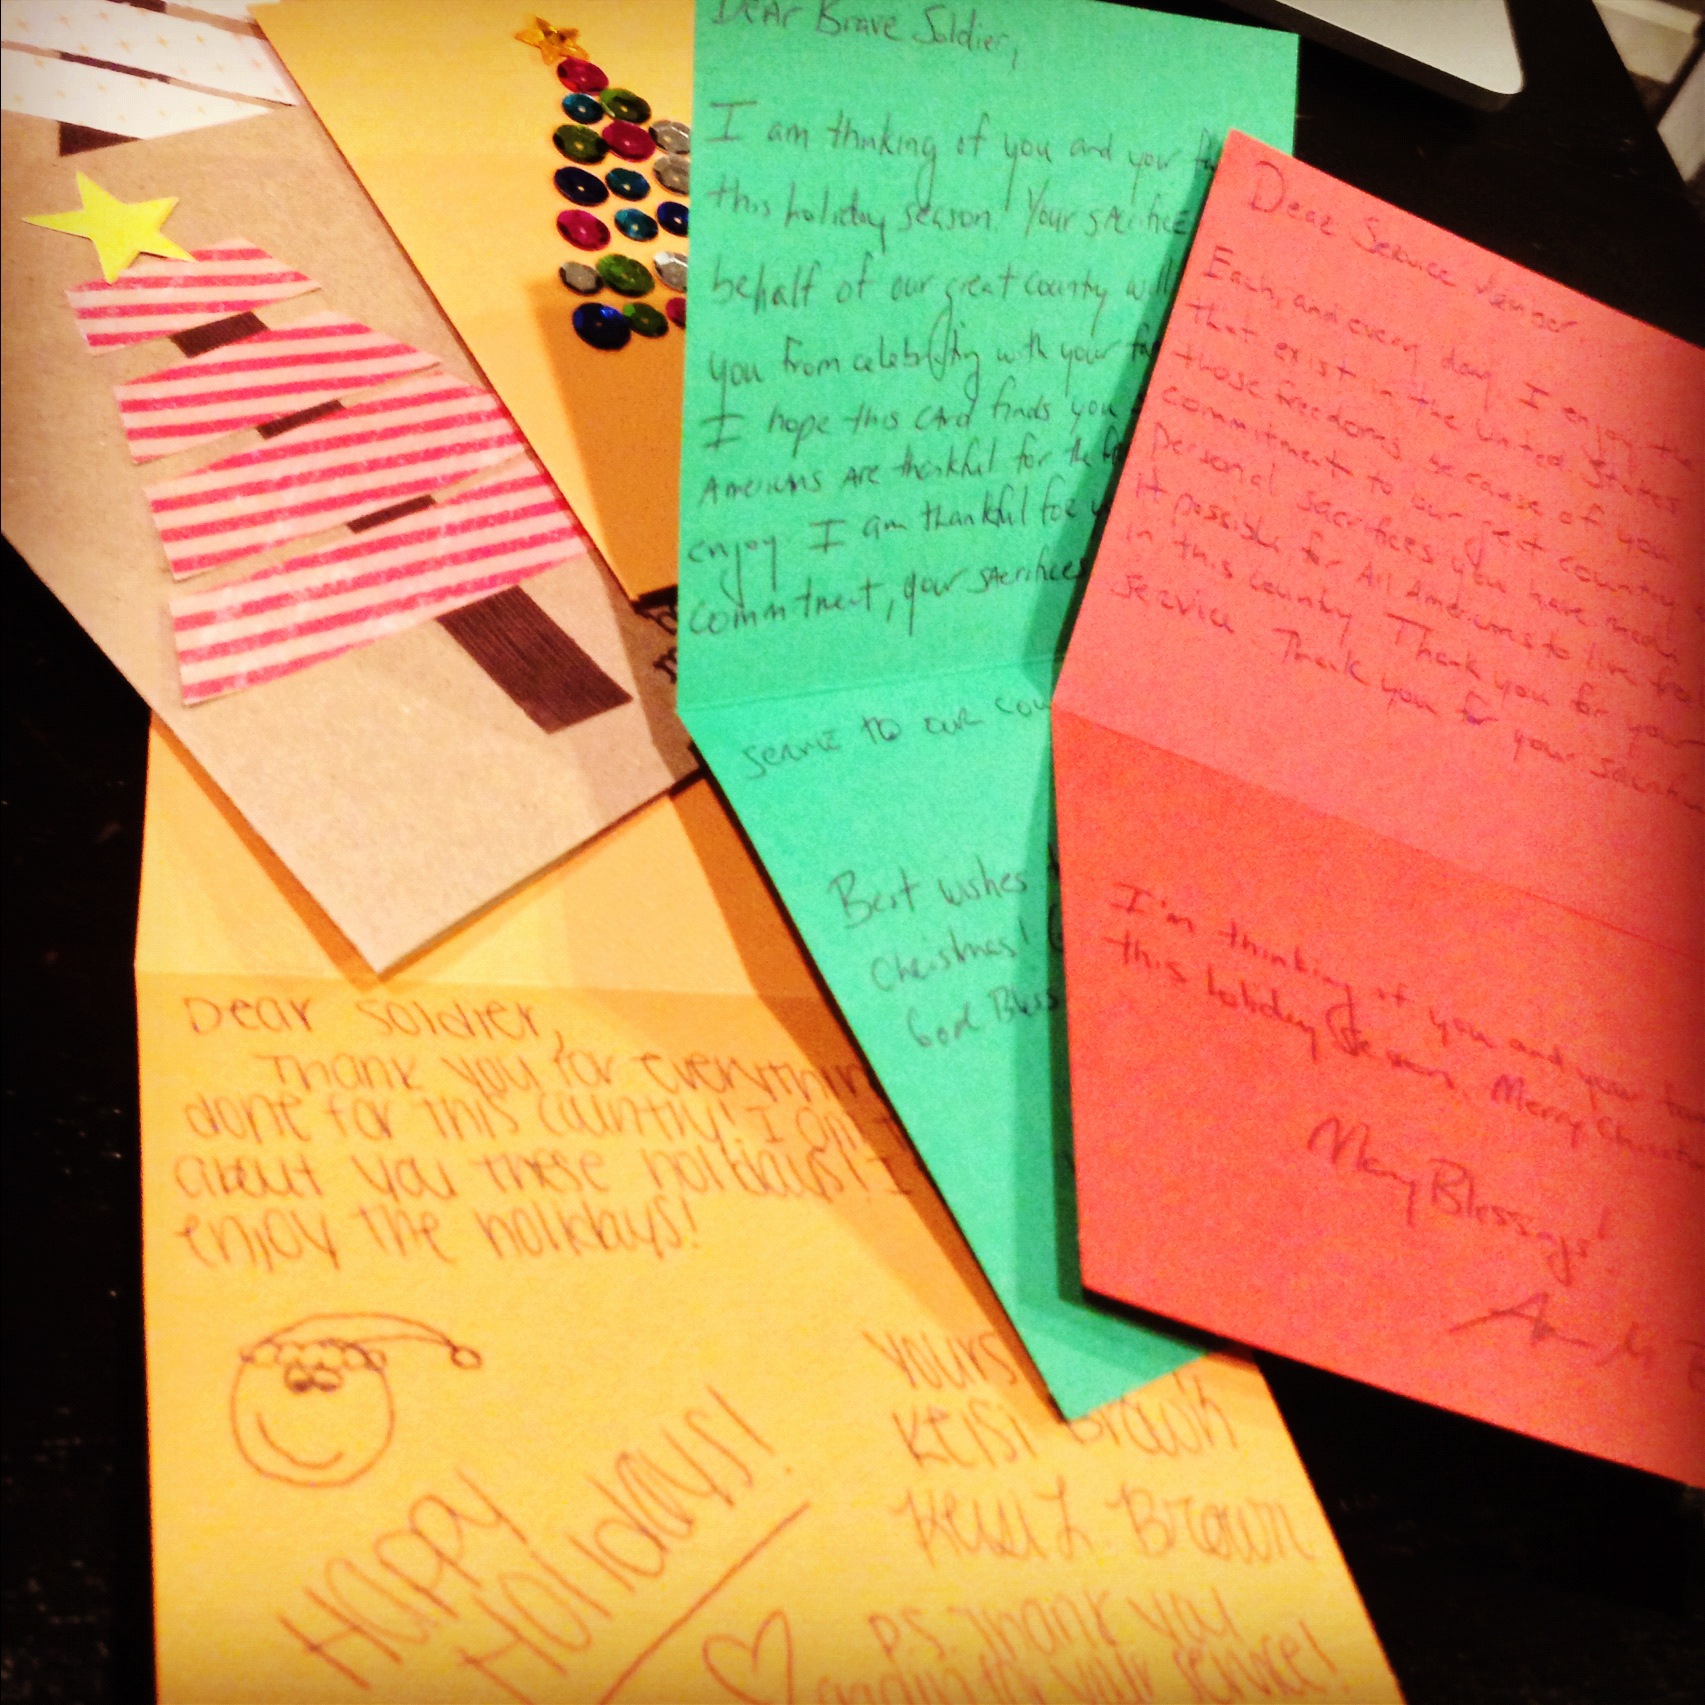 Dear Brave Soldier,
I am thinking of you and your
this holiday season! Your sacrifice
behalf of our great country will
you from celebrating with your
I hope this card finds you
Americans are thankful for the
enjoy. I am thankful for
commitment, your sacrifices
service to our
Best wishes
Christmas!
God Bless
Dear Service
Each, and every day, I enjoy the
that exist in the United States
those freedoms because of your
commitment to our great country
personal sacrifices you have made
It possible for All Americans to live
in this country. Thank you for your
service. Thank you for your
I'm thinking of you and your
this holiday Season. Merry
Many Blessings!
Dear Soldier,
Thank you for
done for this country! I
about you these holidays! I
enjoy the holidays!
Happy
Holidays!
Yours
Keisi Brown
Keisi L Brown
P.S. Thank you
again for your service!